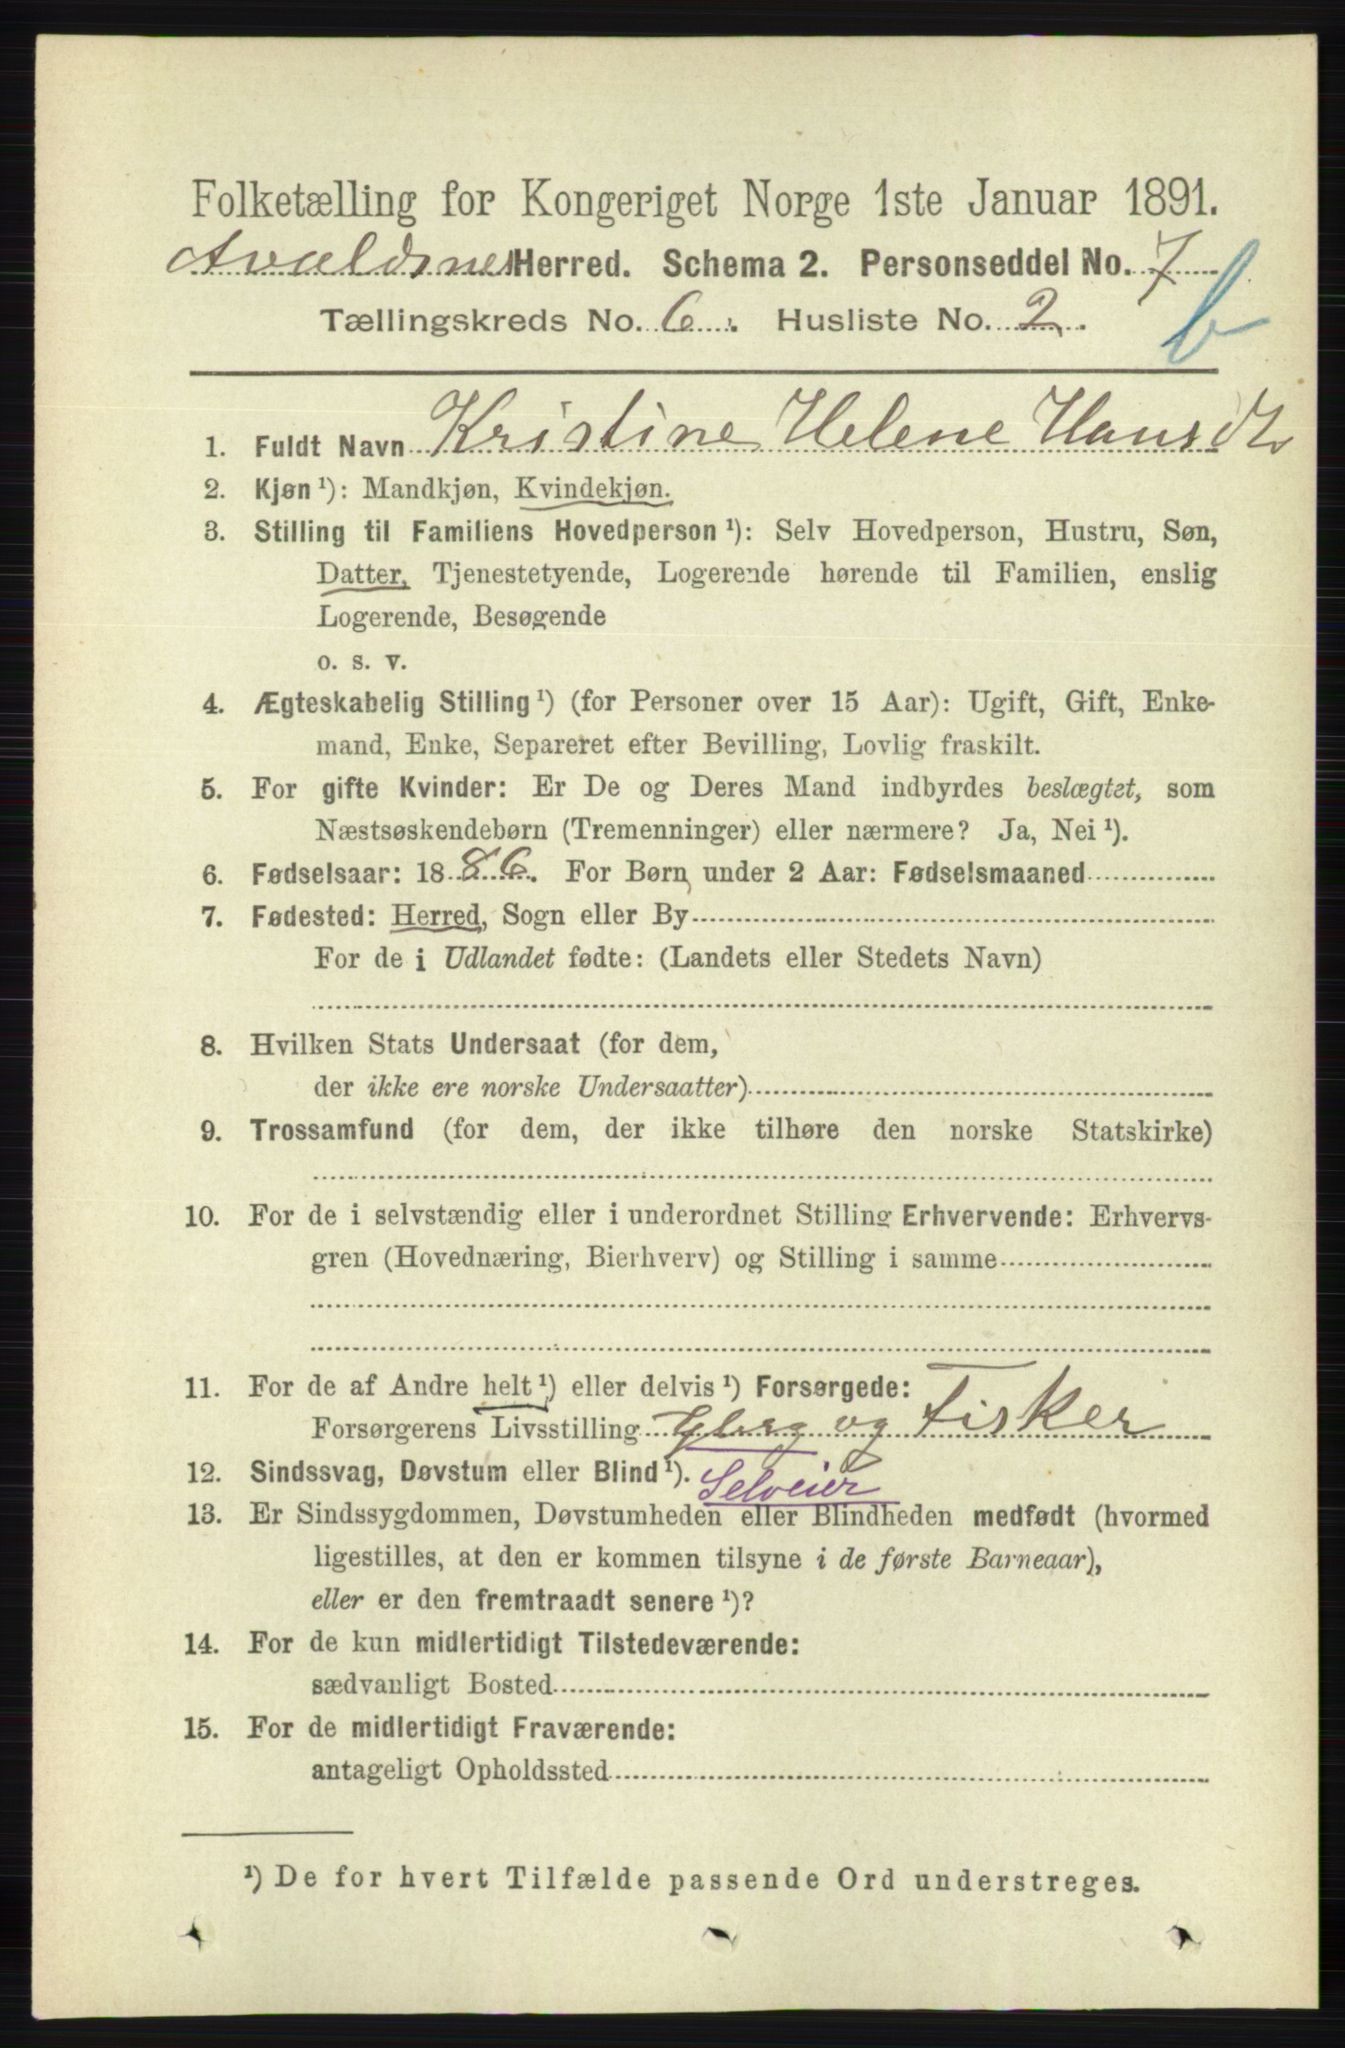 Folketælling for Kongeriget Norge 1ste Januar 1891.
Avaldsnes Herred. Schema 2. Personseddel No. 7
b
Tællingskreds No. 6. Husliste No. 2.
1. Fuldt Navn Kristine Helene Hansdtr
2. Kjøn ¹): Mandkjøn, Kvindekjøn.
3. Stilling til Familiens Hovedperson ¹): Selv Hovedperson, Hustru, Søn,
Datter, Tjenestetyende, Logerende hørende til Familien, enslig
Logerende, Besøgende
o. s. v.
4. Ægteskabelig Stilling ¹) (for Personer over 15 Aar): Ugift, Gift, Enke-
mand, Enke, Separeret efter Bevilling, Lovlig fraskilt.
5. For gifte Kvinder: Er De og Deres Mand indbyrdes beslægtet, som
Næstsøskendebørn (Tremenninger) eller nærmere? Ja, Nei ¹).
6. Fødselsaar: 1886. For Børn under 2 Aar: Fødselsmaaned
7. Fødested: Herred, Sogn eller By
For de i Udlandet fødte: (Landets eller Stedets Navn)
8. Hvilken Stats Undersaat (for dem,
der ikke ere norske Undersaatter)
9. Trossamfund (for dem, der ikke tilhøre den norske Statskirke)
10. For de i selvstændig eller i underordnet Stilling Erhvervende: Erhvervs-
gren (Hovednæring, Bierhverv) og Stilling i samme
11. For de af Andre helt ¹) eller delvis ¹) Forsørgede:
Forsørgerens Livsstilling og Fisker
12. Sindssvag, Døvstum eller Blind ¹). Selveier
13. Er Sindssygdommen, Døvstumheden eller Blindheden medfødt (hvormed
ligestilles, at den er kommen tilsyne i de første Barneaar),
eller er den fremtraadt senere ¹)?
14. For de kun midlertidigt Tilstedeværende:
sædvanligt Bosted
15. For de midlertidigt Fraværende:
antageligt Opholdssted
¹) De for hvert Tilfælde passende Ord understreges.